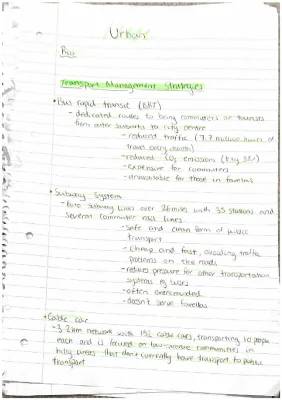 Urban
Rio
Transport Management Strategies
• Bus rapid transit (BRT)
- dedicated routes to bring commuters or tourists
from outer suburbs to city centre
- reduced traffic (7.7 million hours of
travel every month)
- reduced CO2 emissions
- expensive for commuters
- unavailable for those in favelas
• Subway System
- two subway lines over 26 miles with 35 stations and
several commuter rail lines
- safe and clean form of public
transport
- cheap and fast, avoiding traffic
problems on the roads
- reduces pressure for other transportation
systems eg buses
- often overcrowded
- doesn't serve favellas
• Cable car
- 3.2km network with 152 cable cars, transporting 10 people
each and is focused on low-income communities in
hilly areas that don't currently have transport to public
transport